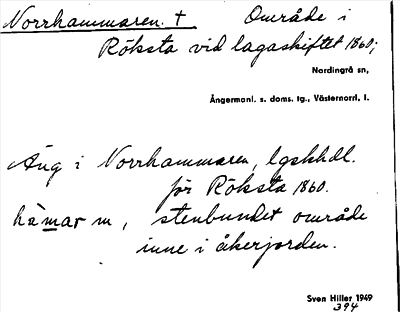 Norrhammaren. † Område i
Röksta vid lagaskiftet 1860;
Nordingrå sn,
Ångermanl. s. doms. tg., Västernorrl. l.
Äng i Norrhammaren, lgskhdl.
för Röksta 1860.
hàmar m, stenbundet område
inne i åkerjorden.
Sven Hiller 1949
394